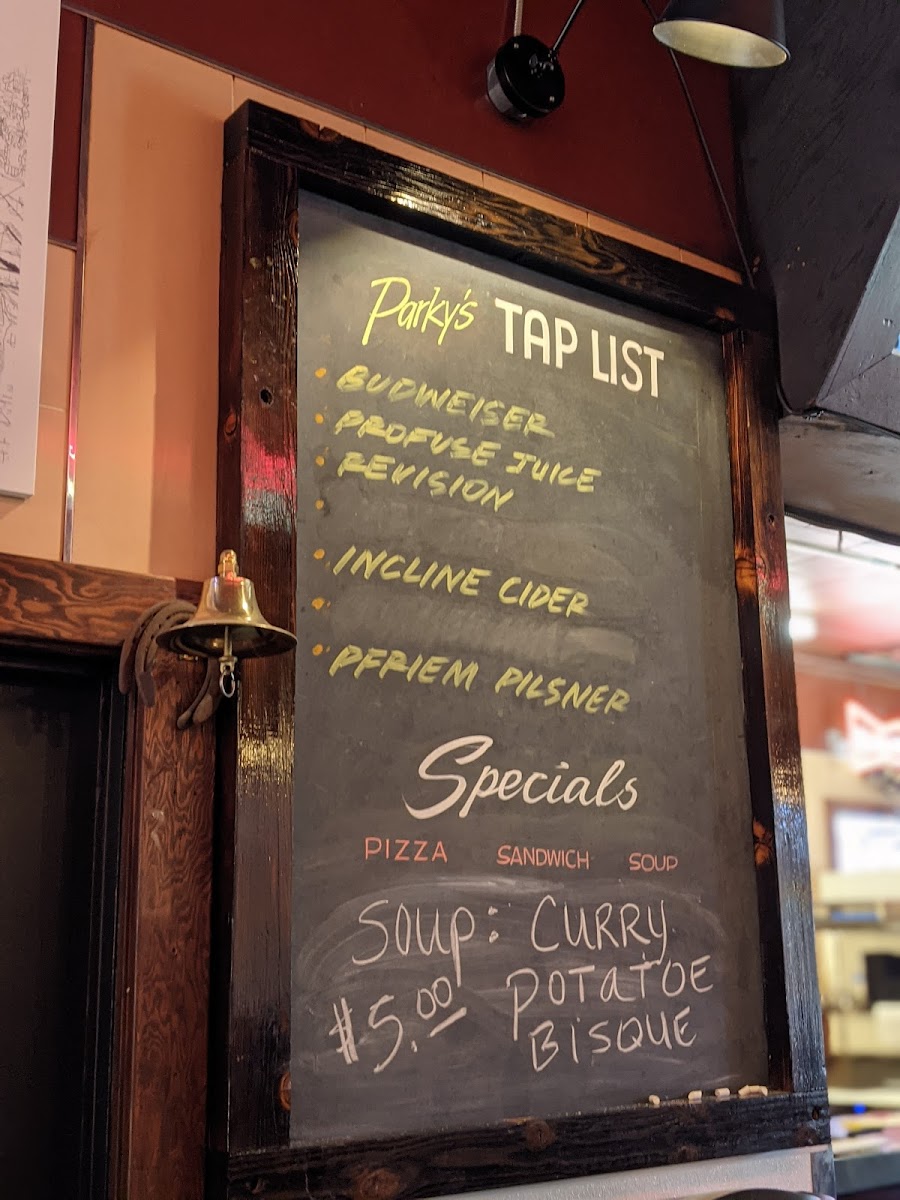 Parky's TAP LIST
• BUDWEISER
• PROFUSE JUICE
• REVISION
•
• INCLINE CIDER
•
• PFRIEM PILSNER
Specials
PIZZA SANDWICH SOUP
SOUP: CURRY
$5.00 POTATOE
BISQUE